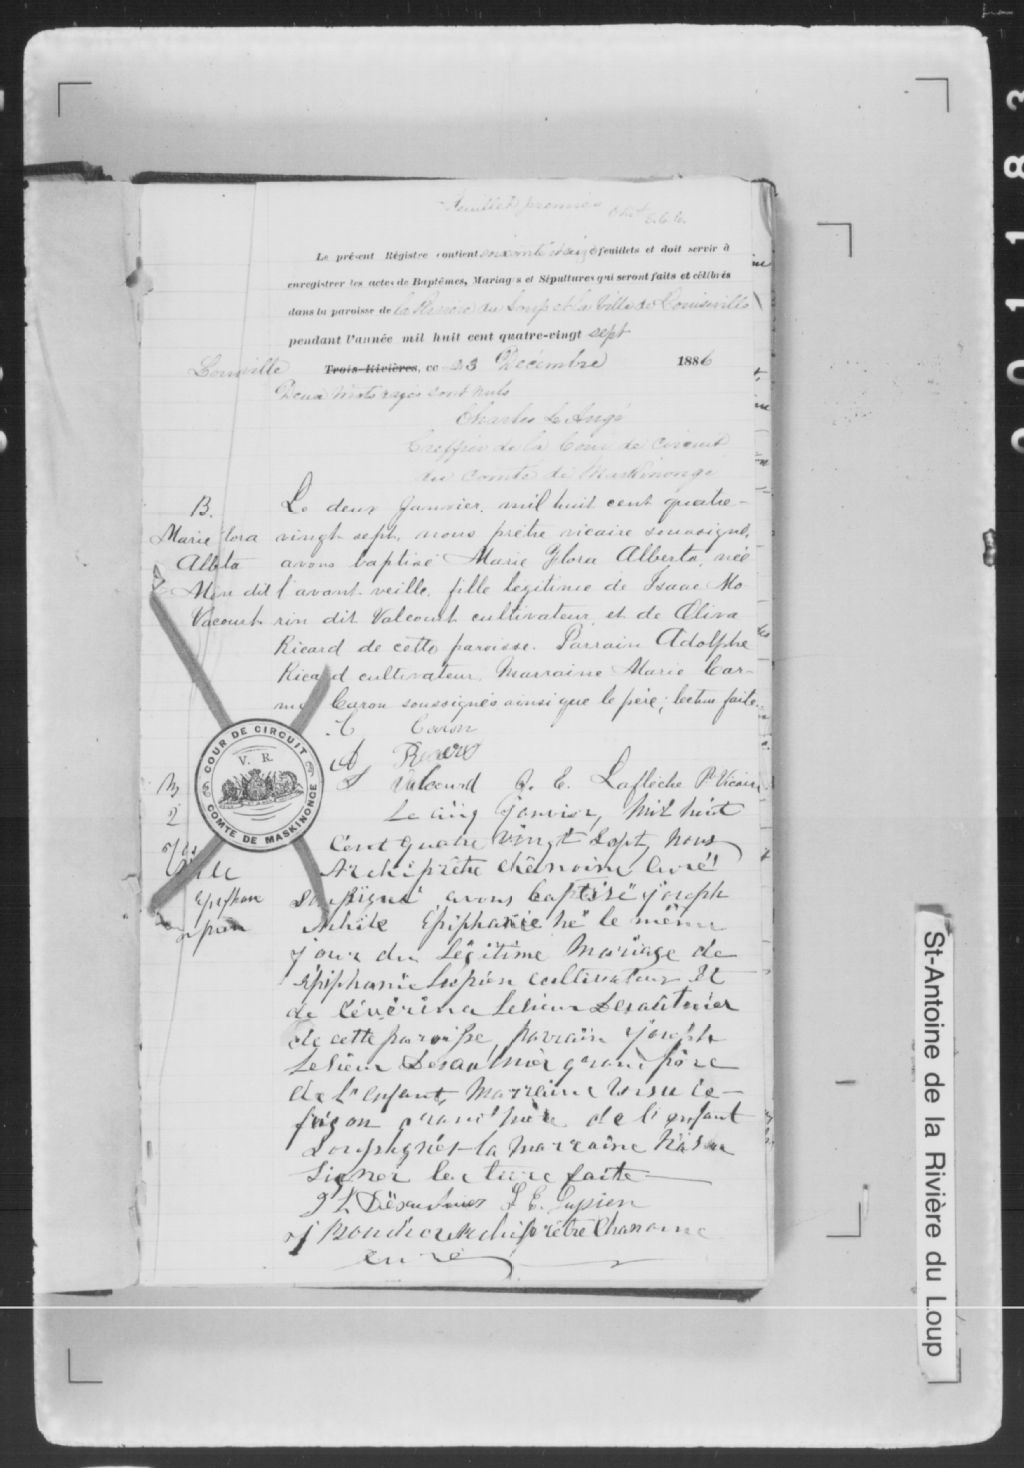 Feuillet premier
Le présent Régistre contient soixante et seize feuillets et doit servir à
enregistrer les actes de Baptêmes, Mariages et Sépultures qui seront faits et célébrés
dans la paroisse de la Rivière du Loup et la Ville de Louiseville
pendant l'année mil huit cent quatre-vingt sept
Louiseville Trois-Rivières, ce 23 Décembre 1886
Deux mots rayés sont nuls
Charles L Angé
Greffier de la Cour de Circuit
du Comté de Maskinongé
B.
Marie Flora
Alberta
Morin dit
Vacourt
Le deux Janvier, mil huit cent quatre-
vingt sept, nous prêtre vicaire soussigné,
avons baptisé Marie Flora Alberta, née
l'avant veille, fille légitime de Isaac Mo
rin dit Valcourt cultivateur, et de Oliva
Ricard de cette paroisse. Parrain Adolphe
Ricard cultivateur, Marraine Marie
Caron soussignés ainsi que le père; lecture faite.
Caron
A Ricard
I Valcourd J. E. Laflèche Ptre Vicaire
COUR DE CIRCUIT
V. R.
COMTÉ DE MASKINONGÉ
B
2
Jos
Epiphane
Lupien
Le cinq Janvier, Mil huit
Cent quatre vingt Sept, Nous
Archiprêtre Chanoine Curé
Soussigné avons baptisé Joseph
Achile Epiphanie né le même
jour du Légitime Mariage de
Epiphanie Lupien cultivateur Et
de Séverina Lesieur Desaulnier
de cette paroisse, parrain Joseph
Lesieur Desaulnier grand père
de L'enfant, Marraine
grand'mère de l'enfant
Soussignés la marraine
Signer lecture faite
J L Désaulniers J. E. Lupien
J Boucher Archiprêtre Chanoine
curé
St-Antoine de la Rivière du Loup